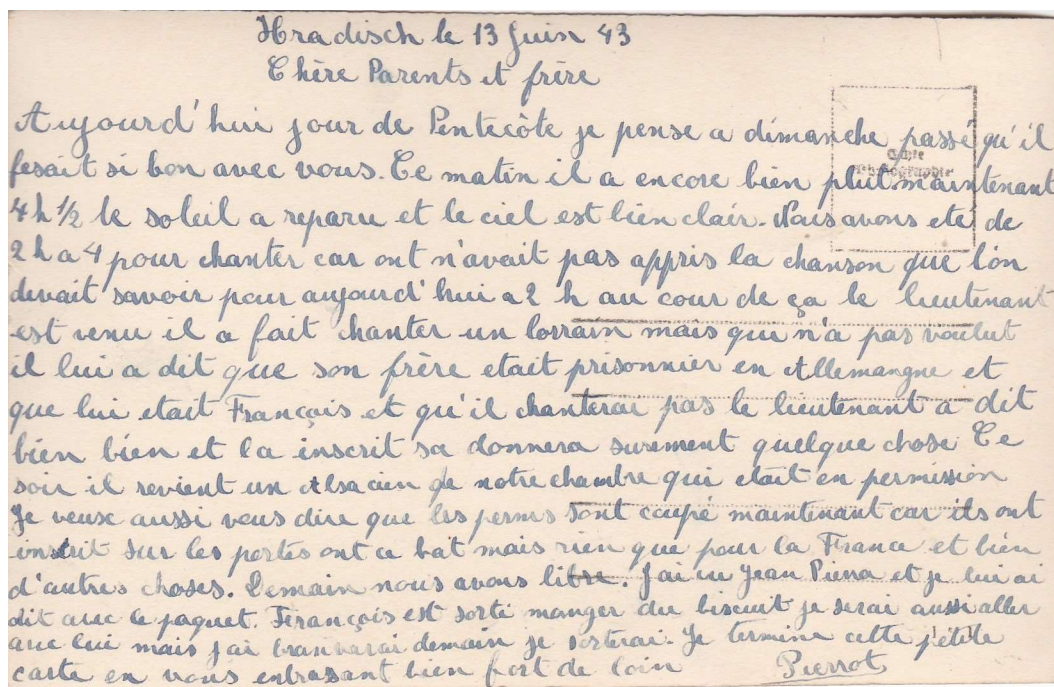 Hradisch le 13 Juin 43
Chère Parents et frère
Aujourd'hui jour de Pentecôte je pense a dimanche passé qu'il
fesait si bon avec vous. Ce matin il a encore bien plut maintenant
4 h 1/2 le soleil a reparu et le ciel est bien clair. Nous avons eté de
2 h a 4 pour chanter car ont n'avait pas appris la chanson que l'on
devait savoir pour aujourd'hui a 2 h au cour de ça le lieutenant
est venu il a fait chanter un lorrain mais qui n'a pas voulut
il lui a dit que son frère etait prisonnier en Allemangne et
que lui etait Français et qu'il chanterai pas le lieutenant a dit
bien bien et la inscrit sa donnera surement quelque chose Ce
soir il revient un Alsacien de notre chambre qui etait en permission
Je veux aussi vous dire que les perms sont coupé maintenant car ils ont
inscrit sur les portes ont ce bat mais rien que pour la France et bien
d'autres choses. Demain nous avons libre. J'ai vu Jean Pierra et je lui ai
dit avec le paquet. François est sorti manger du biscuit je serai aussi aller
avec lui mais j'ai demain je sorterai. Je termine cette petite
carte en vous enbrasant bien fort de loin Pierrot
Carte
Photographie